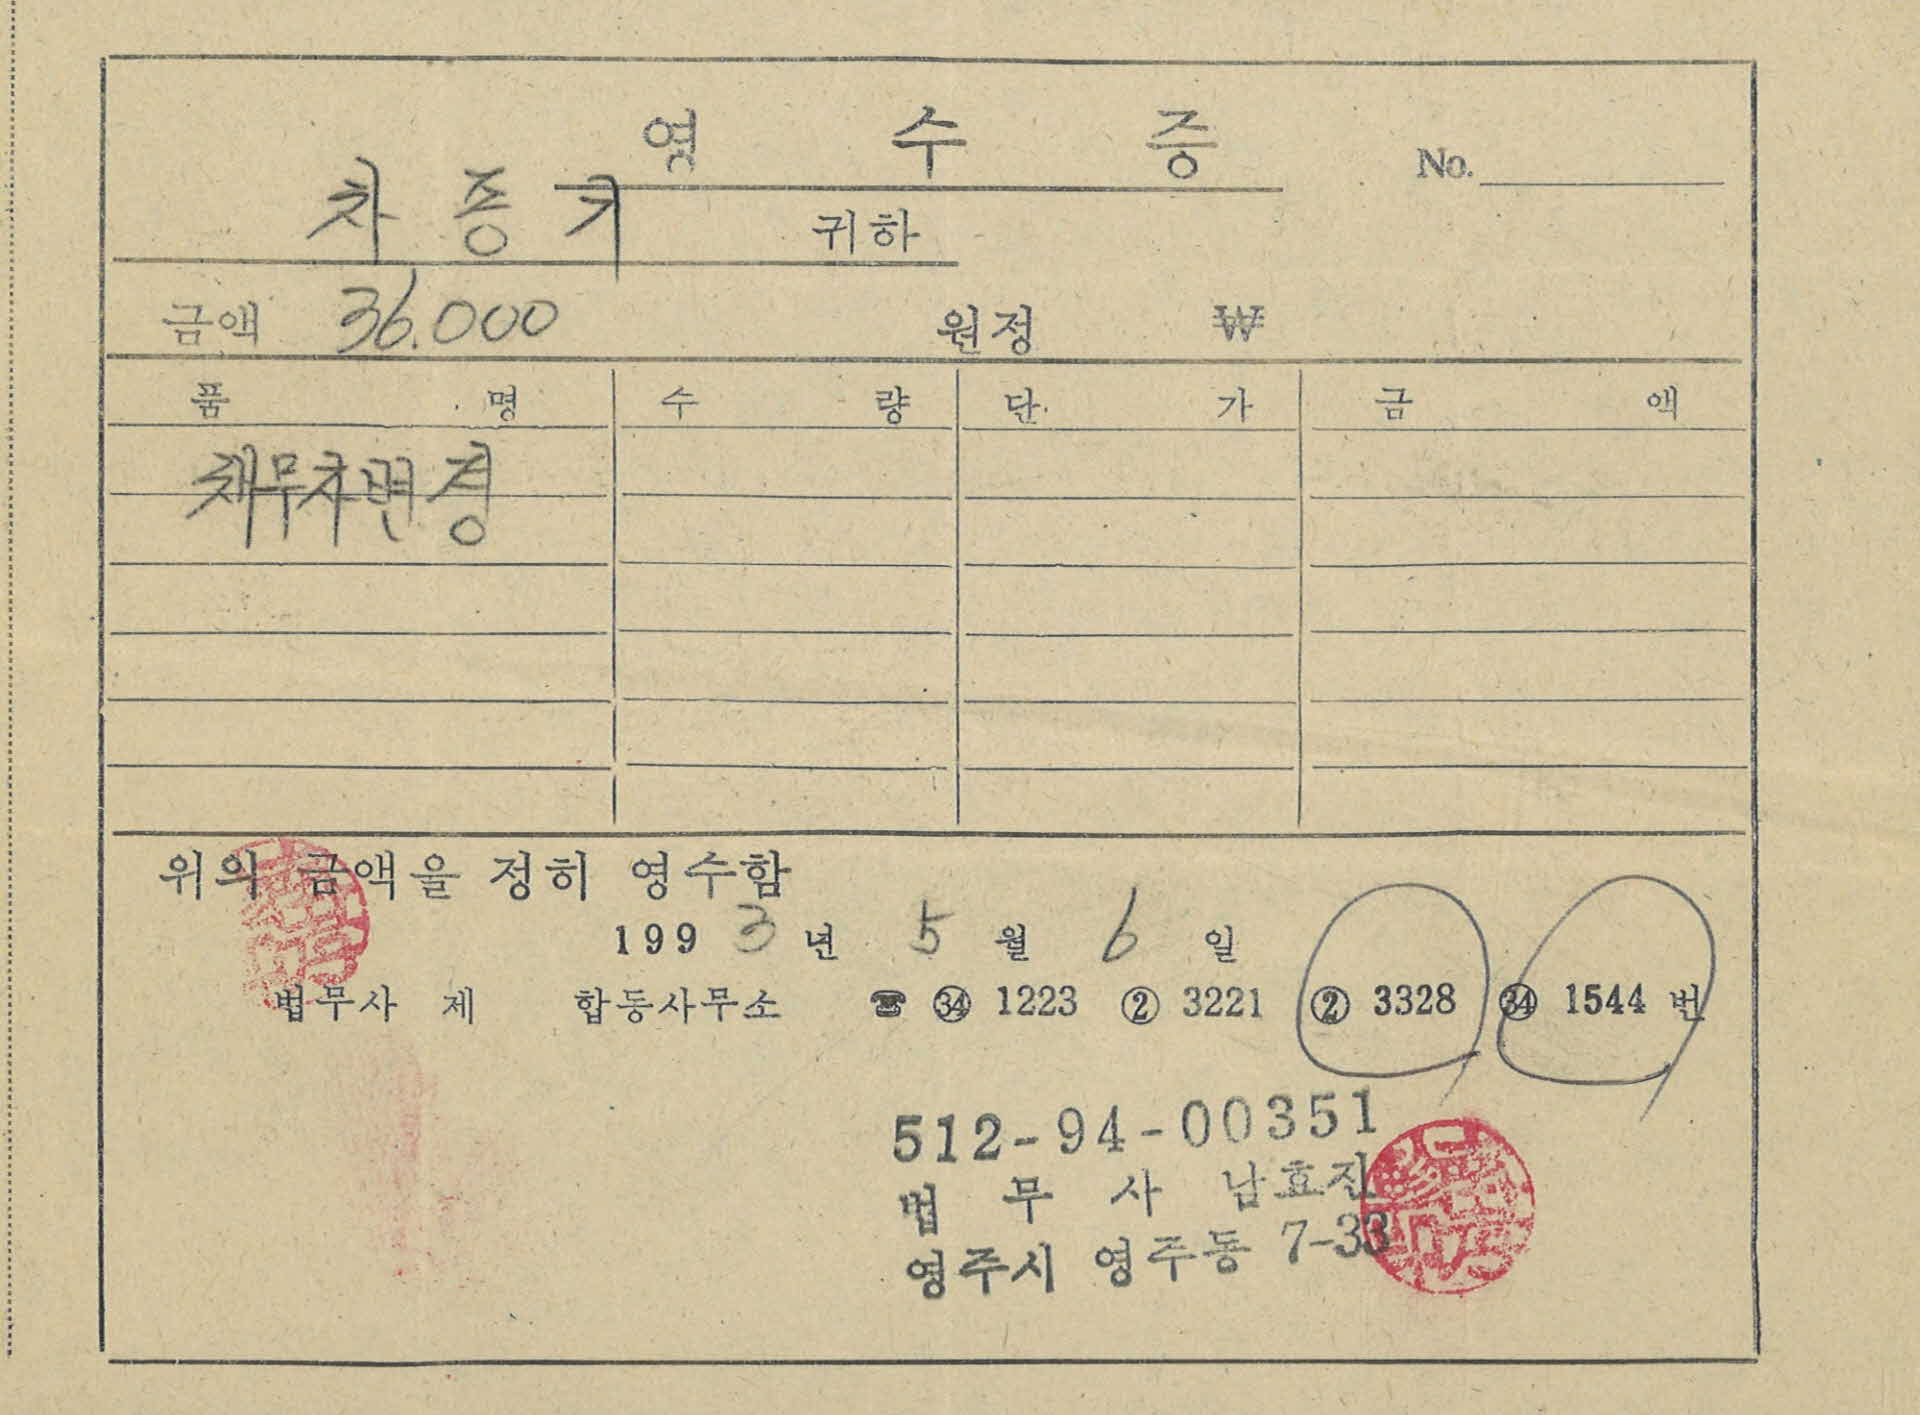 영수증
No.
차종기 귀하
금액 36.000 원정 ₩
품명 수량 단가 금액
채무자변경
위의 금액을 정히 영수함
1993년 5월 6일
법무사 제 합동사무소 ☎ ㉞ 1223 ② 3221 ② 3328 ㉞ 1544 번
512-94-00351
법무사 남효진
영주시 영주동 7-33